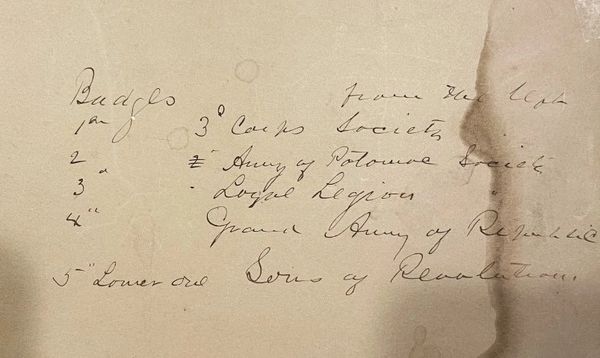 Badges from the left
1st 3d Corps Society
2 " Army of Potomac Society
3 " " Loyal Legion "
4 " Grand Army of Republic
5 " Lower one Sons of Revolution